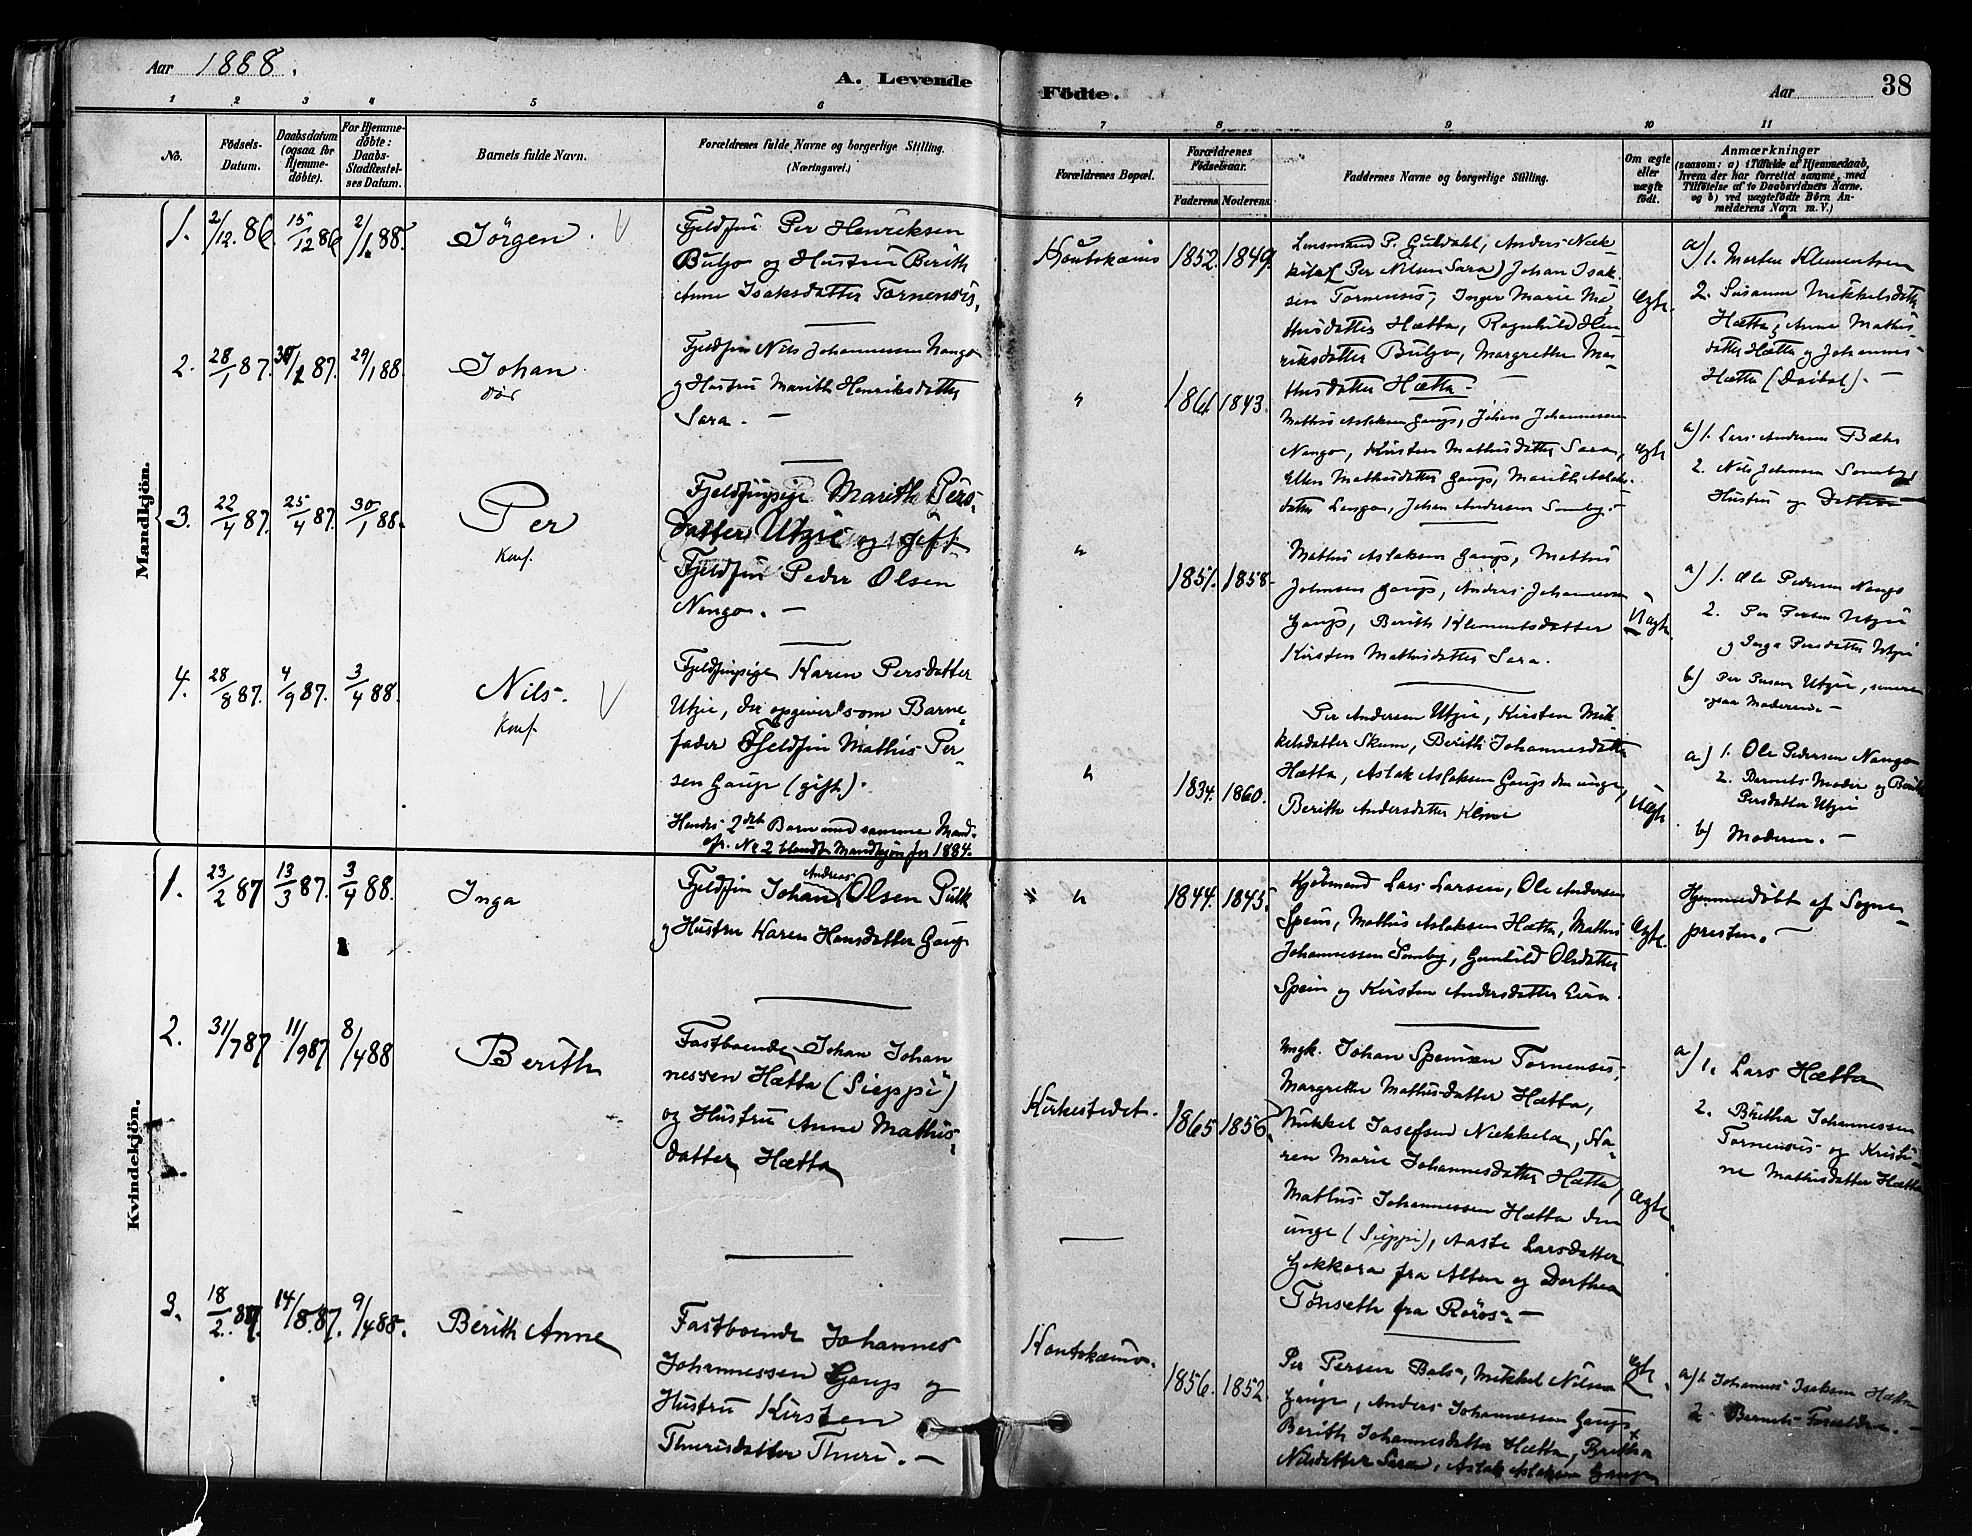 Aar 1888.
A. Levende
Födte.
Aar
38
1 2 3 4 5 6 7 8 9 10 11
No.
Födsels-
Datum.
Daabsdatum
(ogsaa for
Hjemme-
döbte).
For Hjemme-
döbte:
Daabs-
Stadfæstel-
ses Datum.
Barnets fulde Navn.
Forældrenes fulde Navne og borgerlige Stilling.
(Næringsvei.)
Forældrenes Bopæl.
Forældrenes
Födselsaar.
Faderens. Moderens.
Faddernes Navne og borgerlige Stilling.
Om ægte
eller
uægte
födt.
Anmærkninger
(saasom: a) i Tilfælde af Hjemmedaab,
hvem der har forrettet samme, med
Tilföielse af to Daabsvidners Navne.
og b) ved uægtefödte Börn An-
melderens Navn m. V.)
Mandkjön.
1. 2/12.86. 15/12 86 2/1.88. Jörgen.
Fjeldfin Per Henriksen
Buljo og Hustru Berith
Anne Isaksdatter Tornensis.
Koutokæino 1852. 1849.
Lensmand P. Guldahl, Anders Næk-
kila (Per Nilsen Sara) Johan Isak-
sen Tornensis, Inger Marie Ma-
thisdatter Hætta, Ragnhild Hen-
riksdatter Buljo, Margrethe Ma-
thisdatter Hætta.
Ægte.
a) 1. Morten Klementsen
2. Susanne Mikkelsdatter
Hætta, Anne Mathis-
datter Hætta og Johannes
Hætta (Daibal). —
2. 28/1 87. 30/1 87. 29/1 88. Johan
dör
Fjeldfin Nils Johannessen Nango
og Hustru Marith Henriksdatter
Sara. —
" 1861 1843.
Mathis Aslaksen Gaup, Johan Johannessen
Nango, Kirsten Mathisdatter Sara,
Ellen Mathisdatter Gaup, Marith Aslaks-
datter Lango, Johan Andersen Somby.
Ægte
a) 1. Lars Andersen Bæhr
2. Nils Johnsen Somby
Hustru og Datter
3. 22/4 87. 25/4 87. 30/1 88. Per
Konf.
Fjeldfinpige Marith Pers-
datter Utzie og gift
Fjeldfin Peder Olsen
Nango. —
" 1851. 1858.
Mathis Aslaksen Gaup, Mathis
Johnsen Gaup, Anders Johannessen
Gaup, Berith Klementsdatter
Kirsten Mathisdatter Sara.
Uægte
a) 1. Ole Pedersen Nango
2. Per Persen Utzie
og Inga Persdatter Utzie
b) Per Persen Utzie, senere
ogsaa Moderen. —
4. 28/8 87. 4/9 87. 3/4 88. Nils.
Konf.
Fjeldfinpige Karen Persdatter
Utzie, der opgiver som Barne-
fader Fjeldfin Mathis Per-
sen Gaup (gift).
Hendes 2det Barn med samme Mand
cfr. No 2 blandt Mandkjön for 1884.
" 1834. 1860.
Per Andersen Utzie, Kirsten Mik-
kelsdatter Skum, Berith Johannesdatter
Hætta, Aslak Aslaksen Gaup den unge,
Berith Andersdatter
Uægte
a) 1. Ole Pedersen Nango
2. Barnets Moder og Berith
Persdatter Utzie
b) Moderen. —
Kvindekjön.
1. 23/2 87 13/3 87. 3/4 88. Inga
Fjeldfin Johan Andreas Olsen Pulk
og Hustru Karen Hansdatter Gaup
" 1844. 1845.
Kjöbmand Lars Larsen, Ole Andersen
Spein, Mathis Aslaksen Hætta, Mathis
Johannessen Somby, Gunhild Olsdatter
Spein og Kirsten Andersdatter Eira.
Ægte.
Hjemmedöbt af Sogne-
presten. —
2. 31/7 87 11/9 87 8/4 88 Berith
Fastboende Johan Johan
nessen Hætta (Sieppi)
og Hustru Anne Mathis-
datter Hætta
Kirkestedet. 1865 1856.
Ungk. Johan Speinsen Tornensis,
Margrethe Mathisdatter Hætta,
Mikkel Josefsen Nækkela, Ka-
ren Marie Johannesdatter Hætta,
Mathis Johannessen Hætta den
unge (Sieppi), Aaste Larsdatter
Gokkora fra Alten og Dorthea
Tönseth fra Röros. —
Ægte.
a) 1. Lars Hætta
2. Britha Johannessen
Tornensis og Kristi-
ne Mathisdatter Hætta
3. 18/2. 87. 14/8. 87. 9/4 88. Berith Anne
Fastboende Johannes
Johannessen Gaup og
Hustru Kirsten
Thurisdatter Thuri. —
Koutokæino. 1856. 1852.
Per Persen Bals, Mikkel Nilsen
Gaup, Anders Johannessen Gaup
Berith Johannesdatter Hætta, Britha
Nilsdatter Sara, Aslak Aslaksen Gaup
Ægte
a) 1. Johannes Isaksen Hætta
2. Barnets Forældre. —